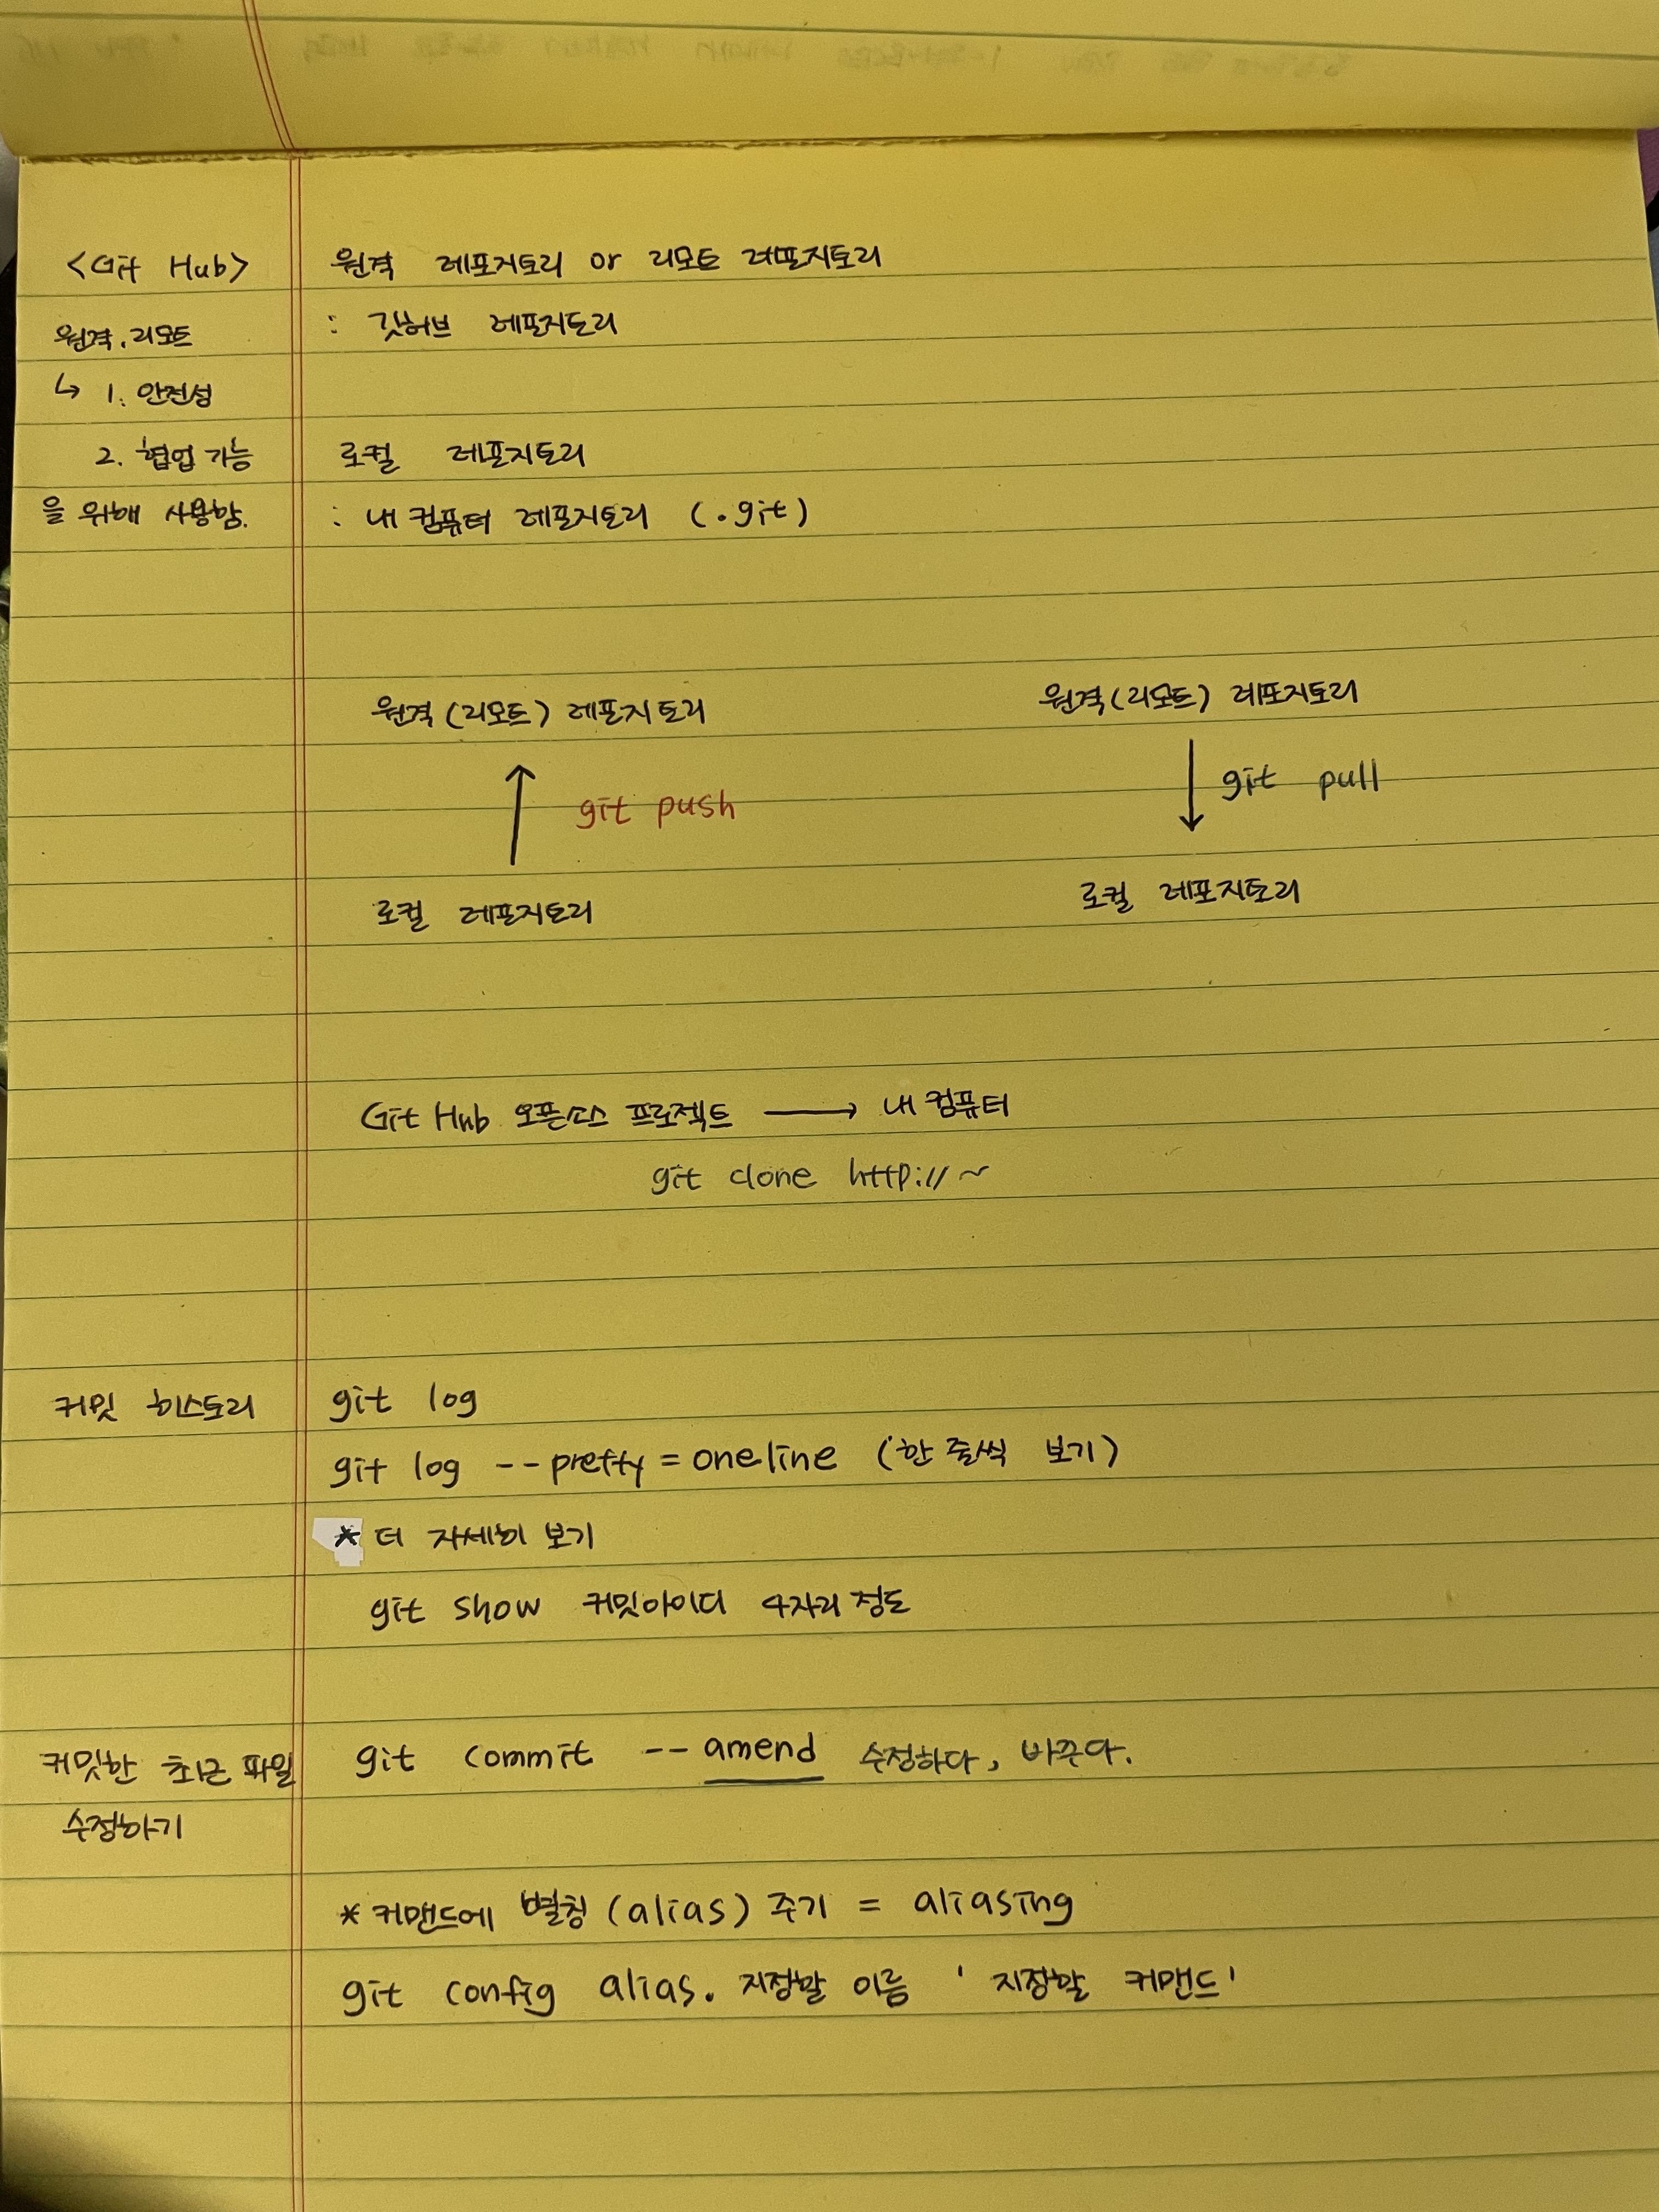 <Git Hub>
원격 레포지토리 or 리모트 레포지토리
원격, 리모트
: 깃허브 레포지토리
↳ 1. 안전성
2. 협업 가능
로컬 레포지토리
을 위해 사용함.
: 내 컴퓨터 레포지토리 (.git)
원격(리모트) 레포지토리
원격(리모트) 레포지토리
↑ git push
↓ git pull
로컬 레포지토리
로컬 레포지토리
Git Hub 오픈소스 프로젝트 → 내 컴퓨터
git clone http://~
커밋 히스토리
git log
git log --pretty = oneline (한 줄씩 보기)
* 더 자세히 보기
git show 커밋아이디 4자리 정도
커밋한 최근 파일
수정하기
git commit --amend 수정하다, 바꾸다.
* 커맨드에 별칭 (alias) 주기 = aliasing
git config alias. 지정할 이름 ' 지정할 커맨드'